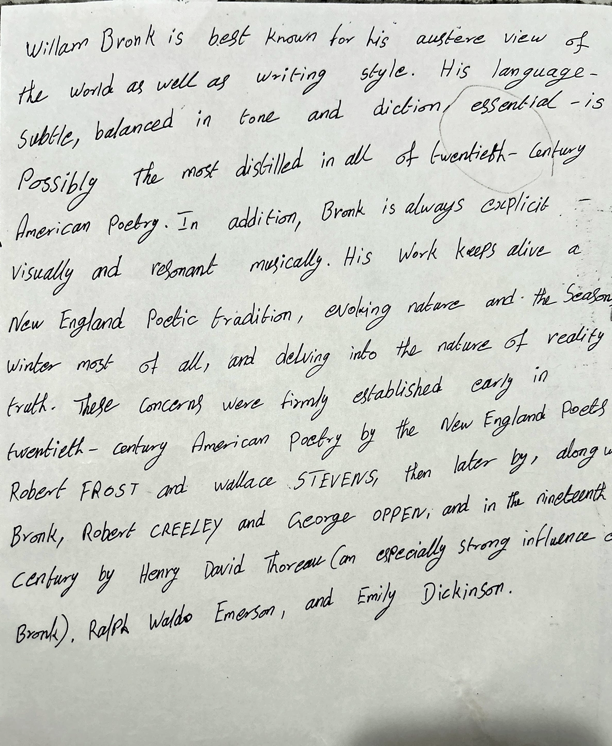 Willam Bronk is best known for his austere view of
the world as well as writing style. His language-
subtle, balanced in tone and diction, essential - is
Possibly the most distilled in all of twentieth- Century
American Poetry. In addition, Bronk is always explicit -
visually and resonant musically. His work keeps alive a
New England Poetic tradition, evoking nature and the Season
winter most of all, and delving into the nature of reality
truth. These concerns were firmly established early in
twentieth- century American Poetry by the New England Poets
Robert FROST and wallace STEVENS, then later by, along
Bronk, Robert CREELEY and George OPPEN, and in the nineteenth
century by Henry David Thoreau (an especially strong influence
Bronk), Ralph Waldo Emerson, and Emily Dickinson.